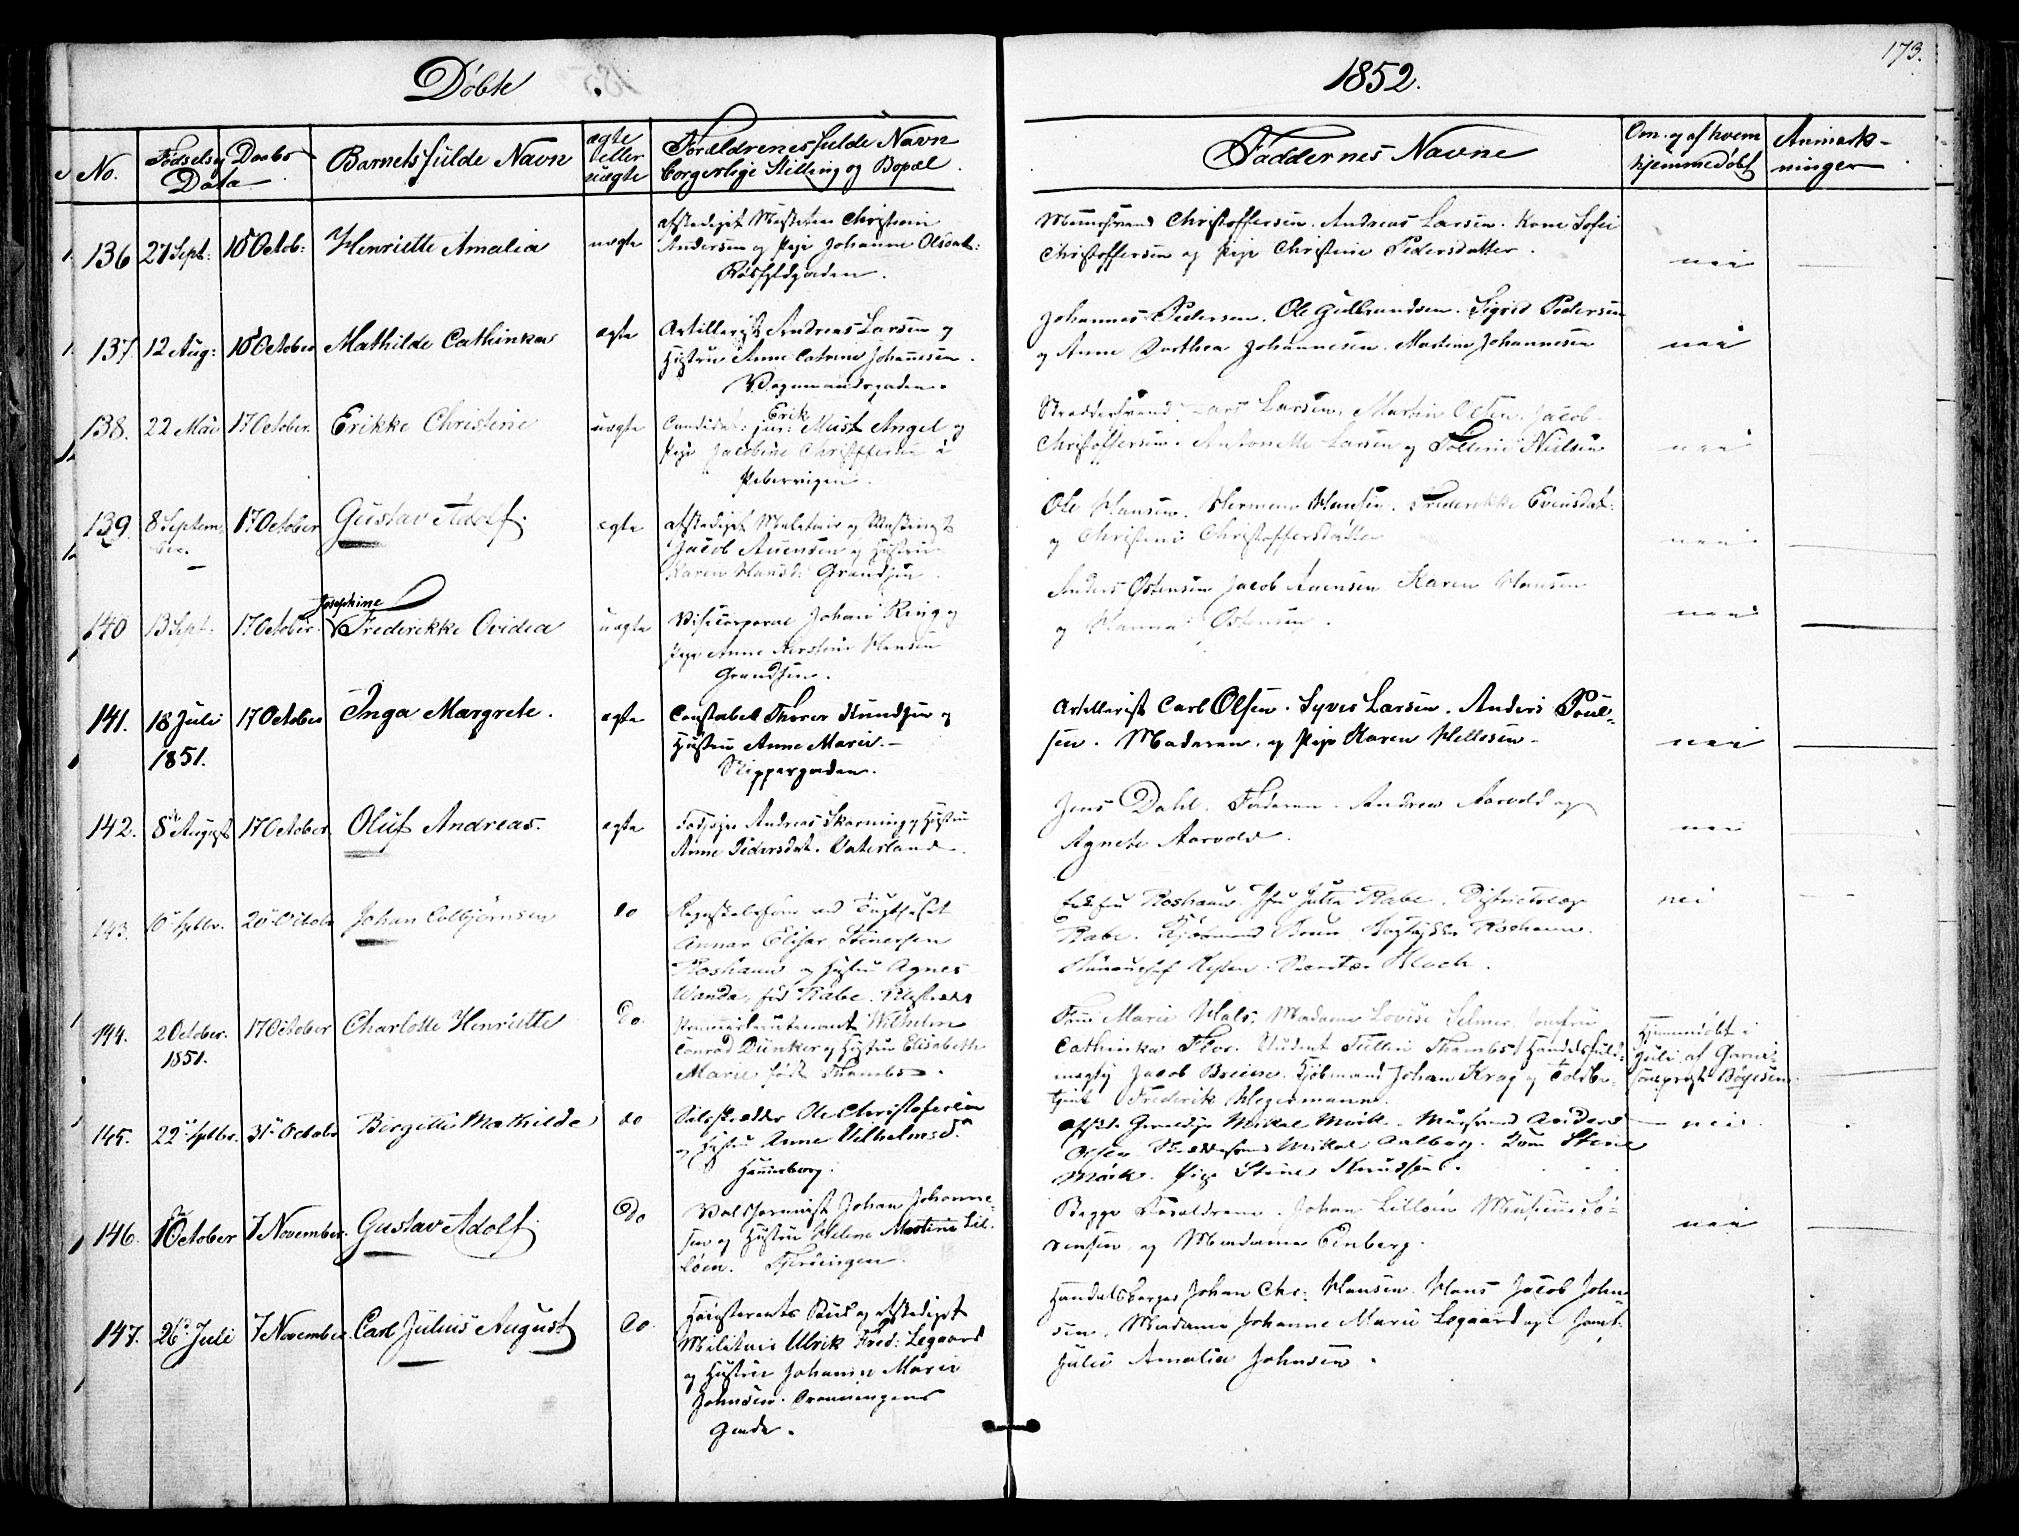 Døbte
1852.
173.
No.
Fødsels og Daabs
Data
Barnets fulde Navn
ægte
eller
uægte
Forældrenes fulde Navn
borgerlige Stilling og Bopæl
Faddernes Navne
Om og af hvem
hjemmedøbt
Anmærk-
ninger
136 27 Sept: 10 Octob: Henriette Amalia uægte
afskediget Christian
Andersen og Pige Johanne Olsdat:
Christoffersen. Andreas Larsen. Kone Sofie
Christoffersen og Pige Christine Pedersdatter.
nei
137 12 Aug: 10 October Mathilde Cathinka ægte
Artillerist Andreas Larsen og
Hustru Anne Catrine Johannesen.
Vognmandsgaden.
Johannes Pedersen. Ole Gulbrandsen. Sigrid Pedersen
og Anne Dorthea Johannesen. Martin Johannesen
nei
138. 22 Mai 17 October. Erikke Christine uægte
Candidat: jur: Erik Must Angel og
Pige Jacobine Christoffersen i
Pebervigen.
Lars Larsen. Martin Olsen. Jacob
Christoffersen. Antonette Larsen og Nielsen
nei
139. 8 Septem-
ber. 17 October Gustav Adolf. ægte
afskediget
Jacob Auensen og Hustru
Karen Hansd: Grændsen.
Ole Hansen. Herman Hansen. Frederikke Evensdat:
og Christine Christoffersdatter
nei
140 13 Sept: 17 October. Josephine
Frederikke Ovidia uægte
Vicecorporal Johan Ring og
Pige Anne Kerstine Hansen
Grændsen.
Anders Østensen Jacob Auensen Karen Hansen
og Hanna Østensen.
nei
141. 18 Juli
1851. 17 October Inga Margrete. ægte
Constabel Thorer Knudsen og
Hustru Anne Marie.
Skippergaden.
Artillerist Carl Olsen. Syver Larsen. Anders Poul-
sen. Moderen. og Pige Karen Hellesen.
nei
142. 8de August 17 October. Oluf Andreas. ægte
Andreas Skarning og Hustru
Anne Pedersdat. Vaterland.
Jens Dahl. Faderen. Andreas Aarvold og
Agnete Aarvold.
nei
143. 10de Septbr. 20de Octobr Johan Colbjørnsen do
Regnskabsfører ved Tugthuset
Annar Elisar Steinersen
Roshauw og Hustru Agnes
Wanda, fød Rabe.
Frøken Roshauw. Jfru Jutta Rabe. Districtslæge
Rabe. Kjøbmand Bruun. Roshauw.
nei
144. 2 October.
1851. 17 October Charlotte Henriette Do.
Premierlieutenant Wilhelm
Conrad Dunker og Hustru Elisabeth
Marie født Thambs.
Frue Marie Hals. Madame Lovise Selmer. Jomfru
Cathinka Floe. Student Tullin Thambs. Handelsfuld-
mægtig Jacob Breien. Kjøbmand Johan Krag og Toldbe-
tjent Frederik Wegermann.
Hjemmedøbt i
Juli af Garni-
sonsprest Bøyesen.
145. 22de Septbr. 31te Octobr Birgitte Mathilde do
Ole Christofersen
og Hustru Anne Vilhelmsd.
Hammersborg.
Mikal Mørk. Anders
Olsen. Mikal Aalborg. Stine
Mørk. Pige Stine Knudsen.
nei.
146. 1 October 7 November. Gustav Adolf. Do
Johan Johanne-
sen og Hustru Helene Martine Lil-
løen. Fjerdingen.
Begge Forældrene. Johan Lilløen Sø-
rensen og Madame Einberg.
nei
147. 26de Juli 7 November. Carl Julius August Do.
afskediget
Militair Ulrik Fred: Legaard
og Hustru Johanne Marie
Johnsen. Dronningens
Gade.
Handelsborger Johan Chr: Hansen. Hans Jacob John-
sen. Madame Johanne Marie Legaard og Jomf:
Julie Amalia Johnsen.